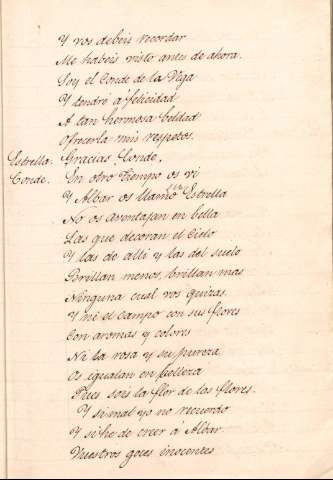 Y vos debeis recordar
Me habeis visto antes de ahora.
Soy el Conde de la Vega
Y tendré a felicidad
A tan hermosa beldad
Ofrecerla mis respetos.
Estrella. Gracias Conde.
Conde. En otro tiempo os vi
Y Albar os llamó Estrella
No os aventajan en bella
Las que decoran el Cielo
Y las de alli y las del suelo
Brillan menos, brillan mas
Ninguna cual vos quizas.
Y ni el campo con sus flores
Con aromas y colores
Ni la rosa y su pureza
Os igualan en belleza
Pues sois la flor de las flores.
Y si mal yo no recuerdo
Y si he de creer á Albar
Vuestros goces inocentes